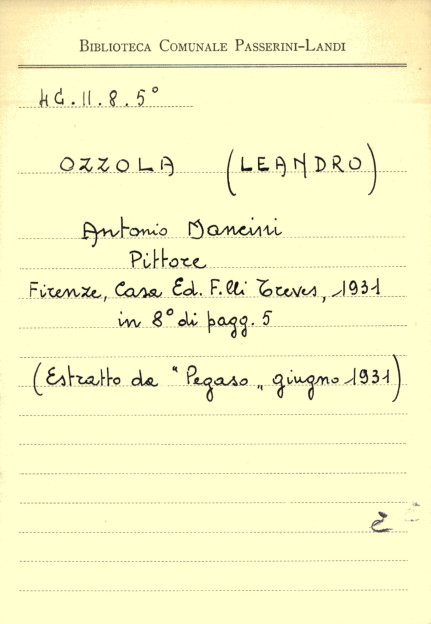 BIBLIOTECA COMUNALE PASSERINI-LANDI
4G.II.8.5°
OZZOLA (LEANDRO)
Antonio Mancini
Pittore
Firenze, Casa Ed. F.lli Treves, 1931
in 8° di pagg. 5
(Estratto da "Pegaso„ giugno 1931)